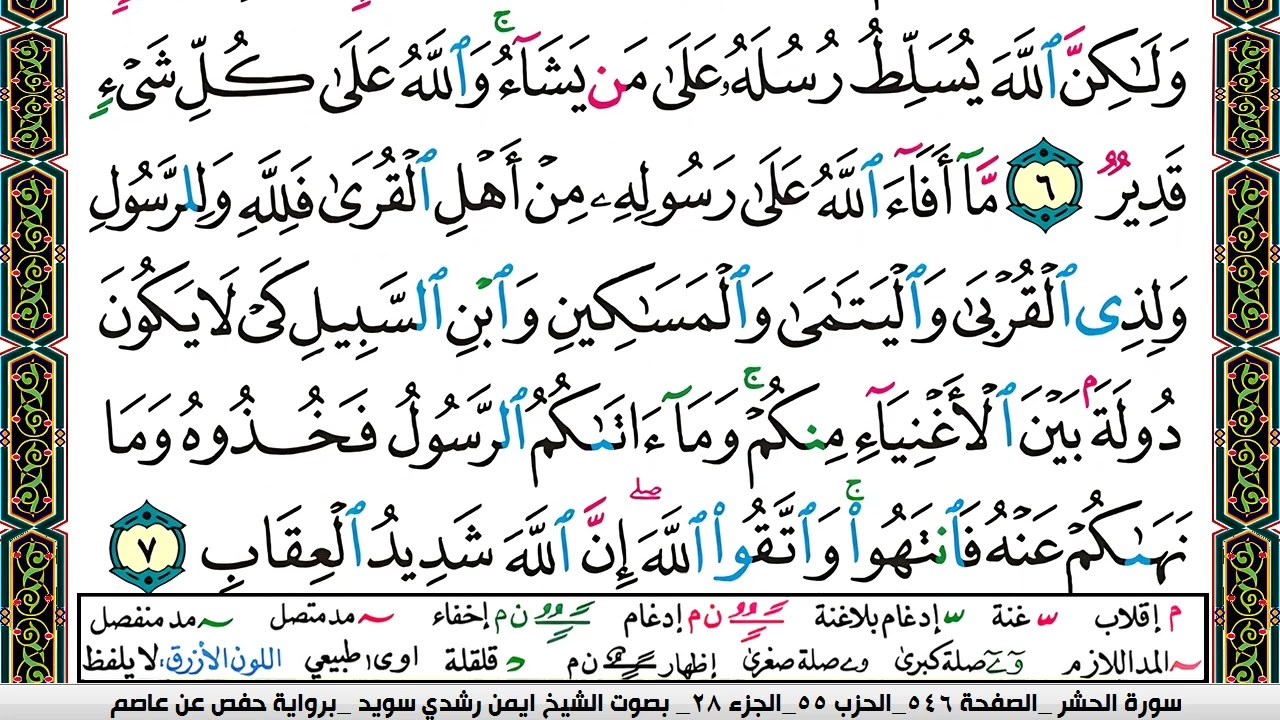 وَلَٰكِنَّ ٱللَّهَ يُسَلِّطُ رُسُلَهُۥ عَلَىٰ مَن يَشَآءُ ۚ وَٱللَّهُ عَلَىٰ كُلِّ شَىْءٍ
قَدِيرٌ ٦ مَّآ أَفَآءَ ٱللَّهُ عَلَىٰ رَسُولِهِۦ مِنْ أَهْلِ ٱلْقُرَىٰ فَلِلَّهِ وَلِلرَّسُولِ
وَلِذِى ٱلْقُرْبَىٰ وَٱلْيَتَٰمَىٰ وَٱلْمَسَٰكِينِ وَٱبْنِ ٱلسَّبِيلِ كَىْ لَا يَكُونَ
دُولَةًۢ بَيْنَ ٱلْأَغْنِيَآءِ مِنكُمْ ۚ وَمَآ ءَاتَىٰكُمُ ٱلرَّسُولُ فَخُذُوهُ وَمَا
نَهَىٰكُمْ عَنْهُ فَٱنتَهُوا۟ ۚ وَٱتَّقُوا۟ ٱللَّهَ ۖ إِنَّ ٱللَّهَ شَدِيدُ ٱلْعِقَابِ ٧
م إقلاب س غنة س إدغام بلاغنة ن م إدغام ن م إخفاء مد متصل مد منفصل
المد اللازم صلة كبرى صلة صغرى إظهار ن م قلقلة اوى طبيعي اللون الأزرق: لا يلفظ
سورة الحشر _الصفحة ٥٤٦_الحزب ٥٥_الجزء ٢٨_ بصوت الشيخ ايمن رشدي سويد _برواية حفص عن عاصم